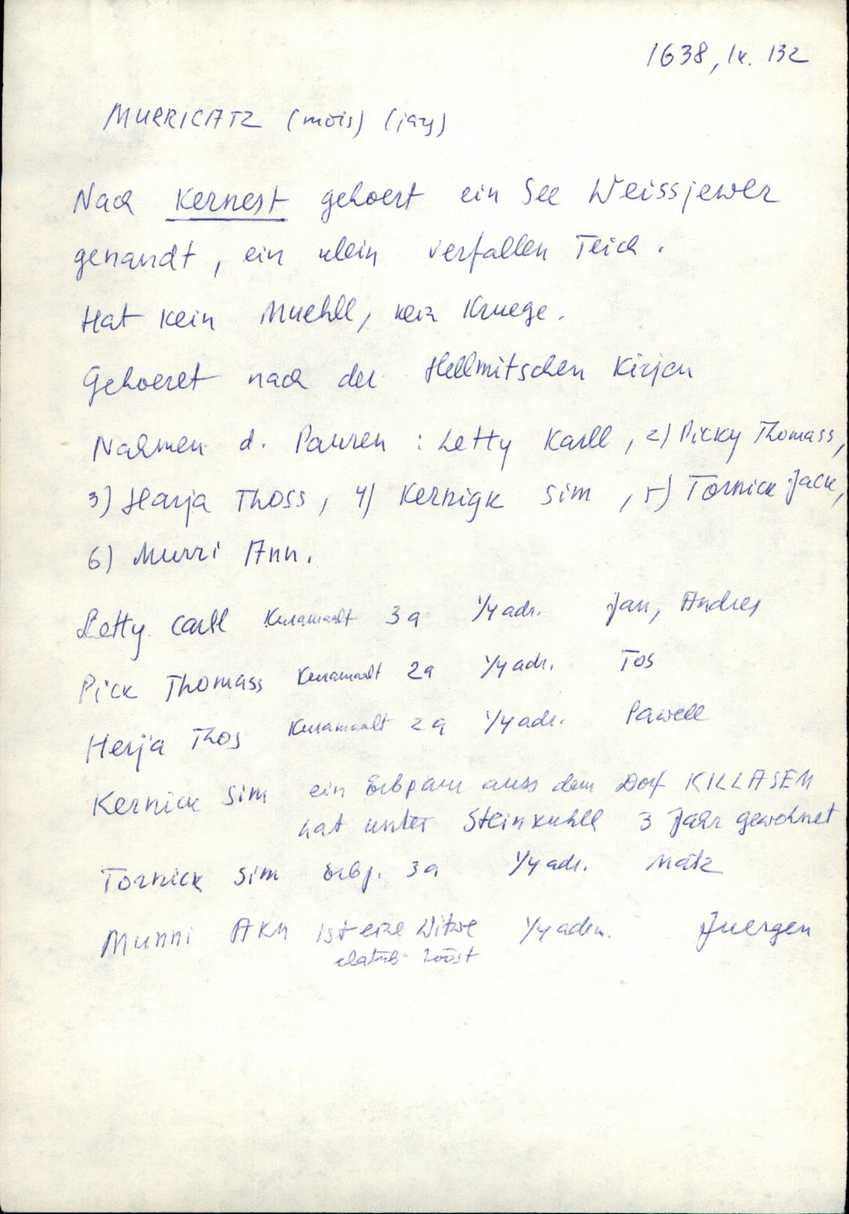 1638, lk. 132
MURRICATZ (mõis) (järg)
Nach Kernest gehoert ein See Weissjewer
genandt, ein klein verfallen Teich.
Hat kein Muehll, kein Kruege.
Gehoeret nach der Hellmitschen Kirjen
Nahmen d. Pauren : Letty Karll, 2) Picky Thomass,
3) Harja Thoss, 4) Kernigk Sim, 5) Tornick Jack,
6) Murri Ann.
Letty Carll Kuramaalt 3 a 1/4 adr. Jan, Andres
Pick Thomass Kuramaalt 2a 1/4 adr. Tos
Herja Thos Kuramaalt 2 a 1/4 adr. Pawell
Kernick Sim ein Erbpaur auss dem Dorf KILLASEM
hat unter Steinkuhll 3 Jahr gewohnet
Tornick Sim Erbp. 3a 1/4 adr. Matz
Munni Ann ist eine Witwe 1/4 adra. Juergen
elatub